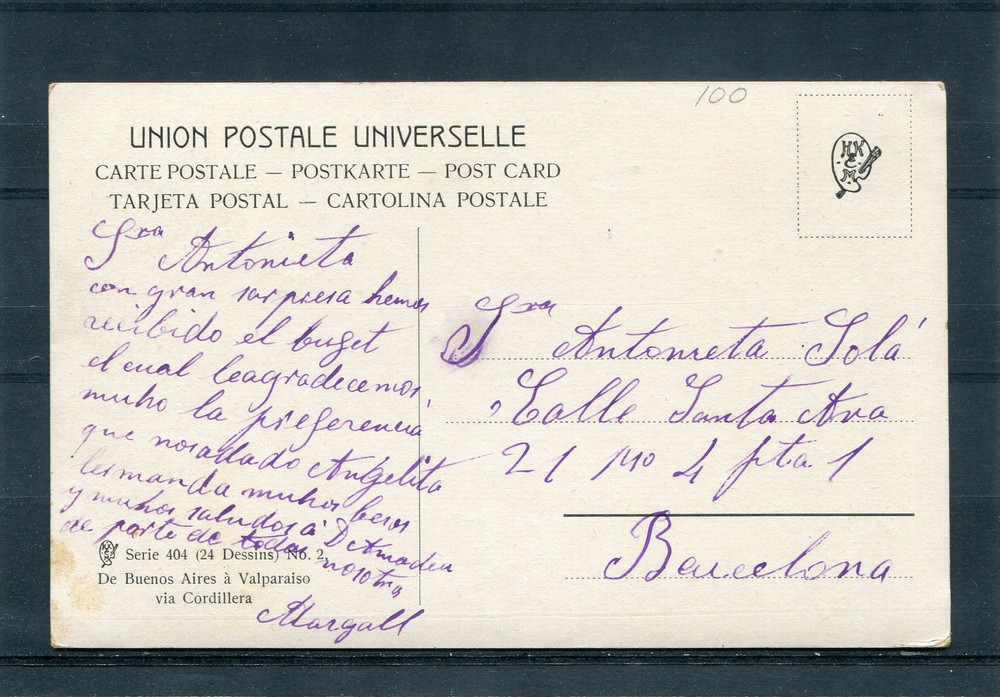 100
UNION POSTALE UNIVERSELLE
CARTE POSTALE — POSTKARTE — POST CARD
TARJETA POSTAL — CARTOLINA POSTALE
HK
&
M
Sra Antonieta
con gran sorpresa hemos
recibido el buget
el cual leagradecemos
muho la preferencia
que nosadado Angelita
lesmanda muhos besos
y muhos saludos a D Amadeu
de parte de todos nosotros
Margall
Serie 404 (24 Dessins) No. 2.
De Buenos Aires à Valparaiso
via Cordillera
Sra
S Antonieta Solá
Calle Santa Ana
21 4 pta 1
Barcelona